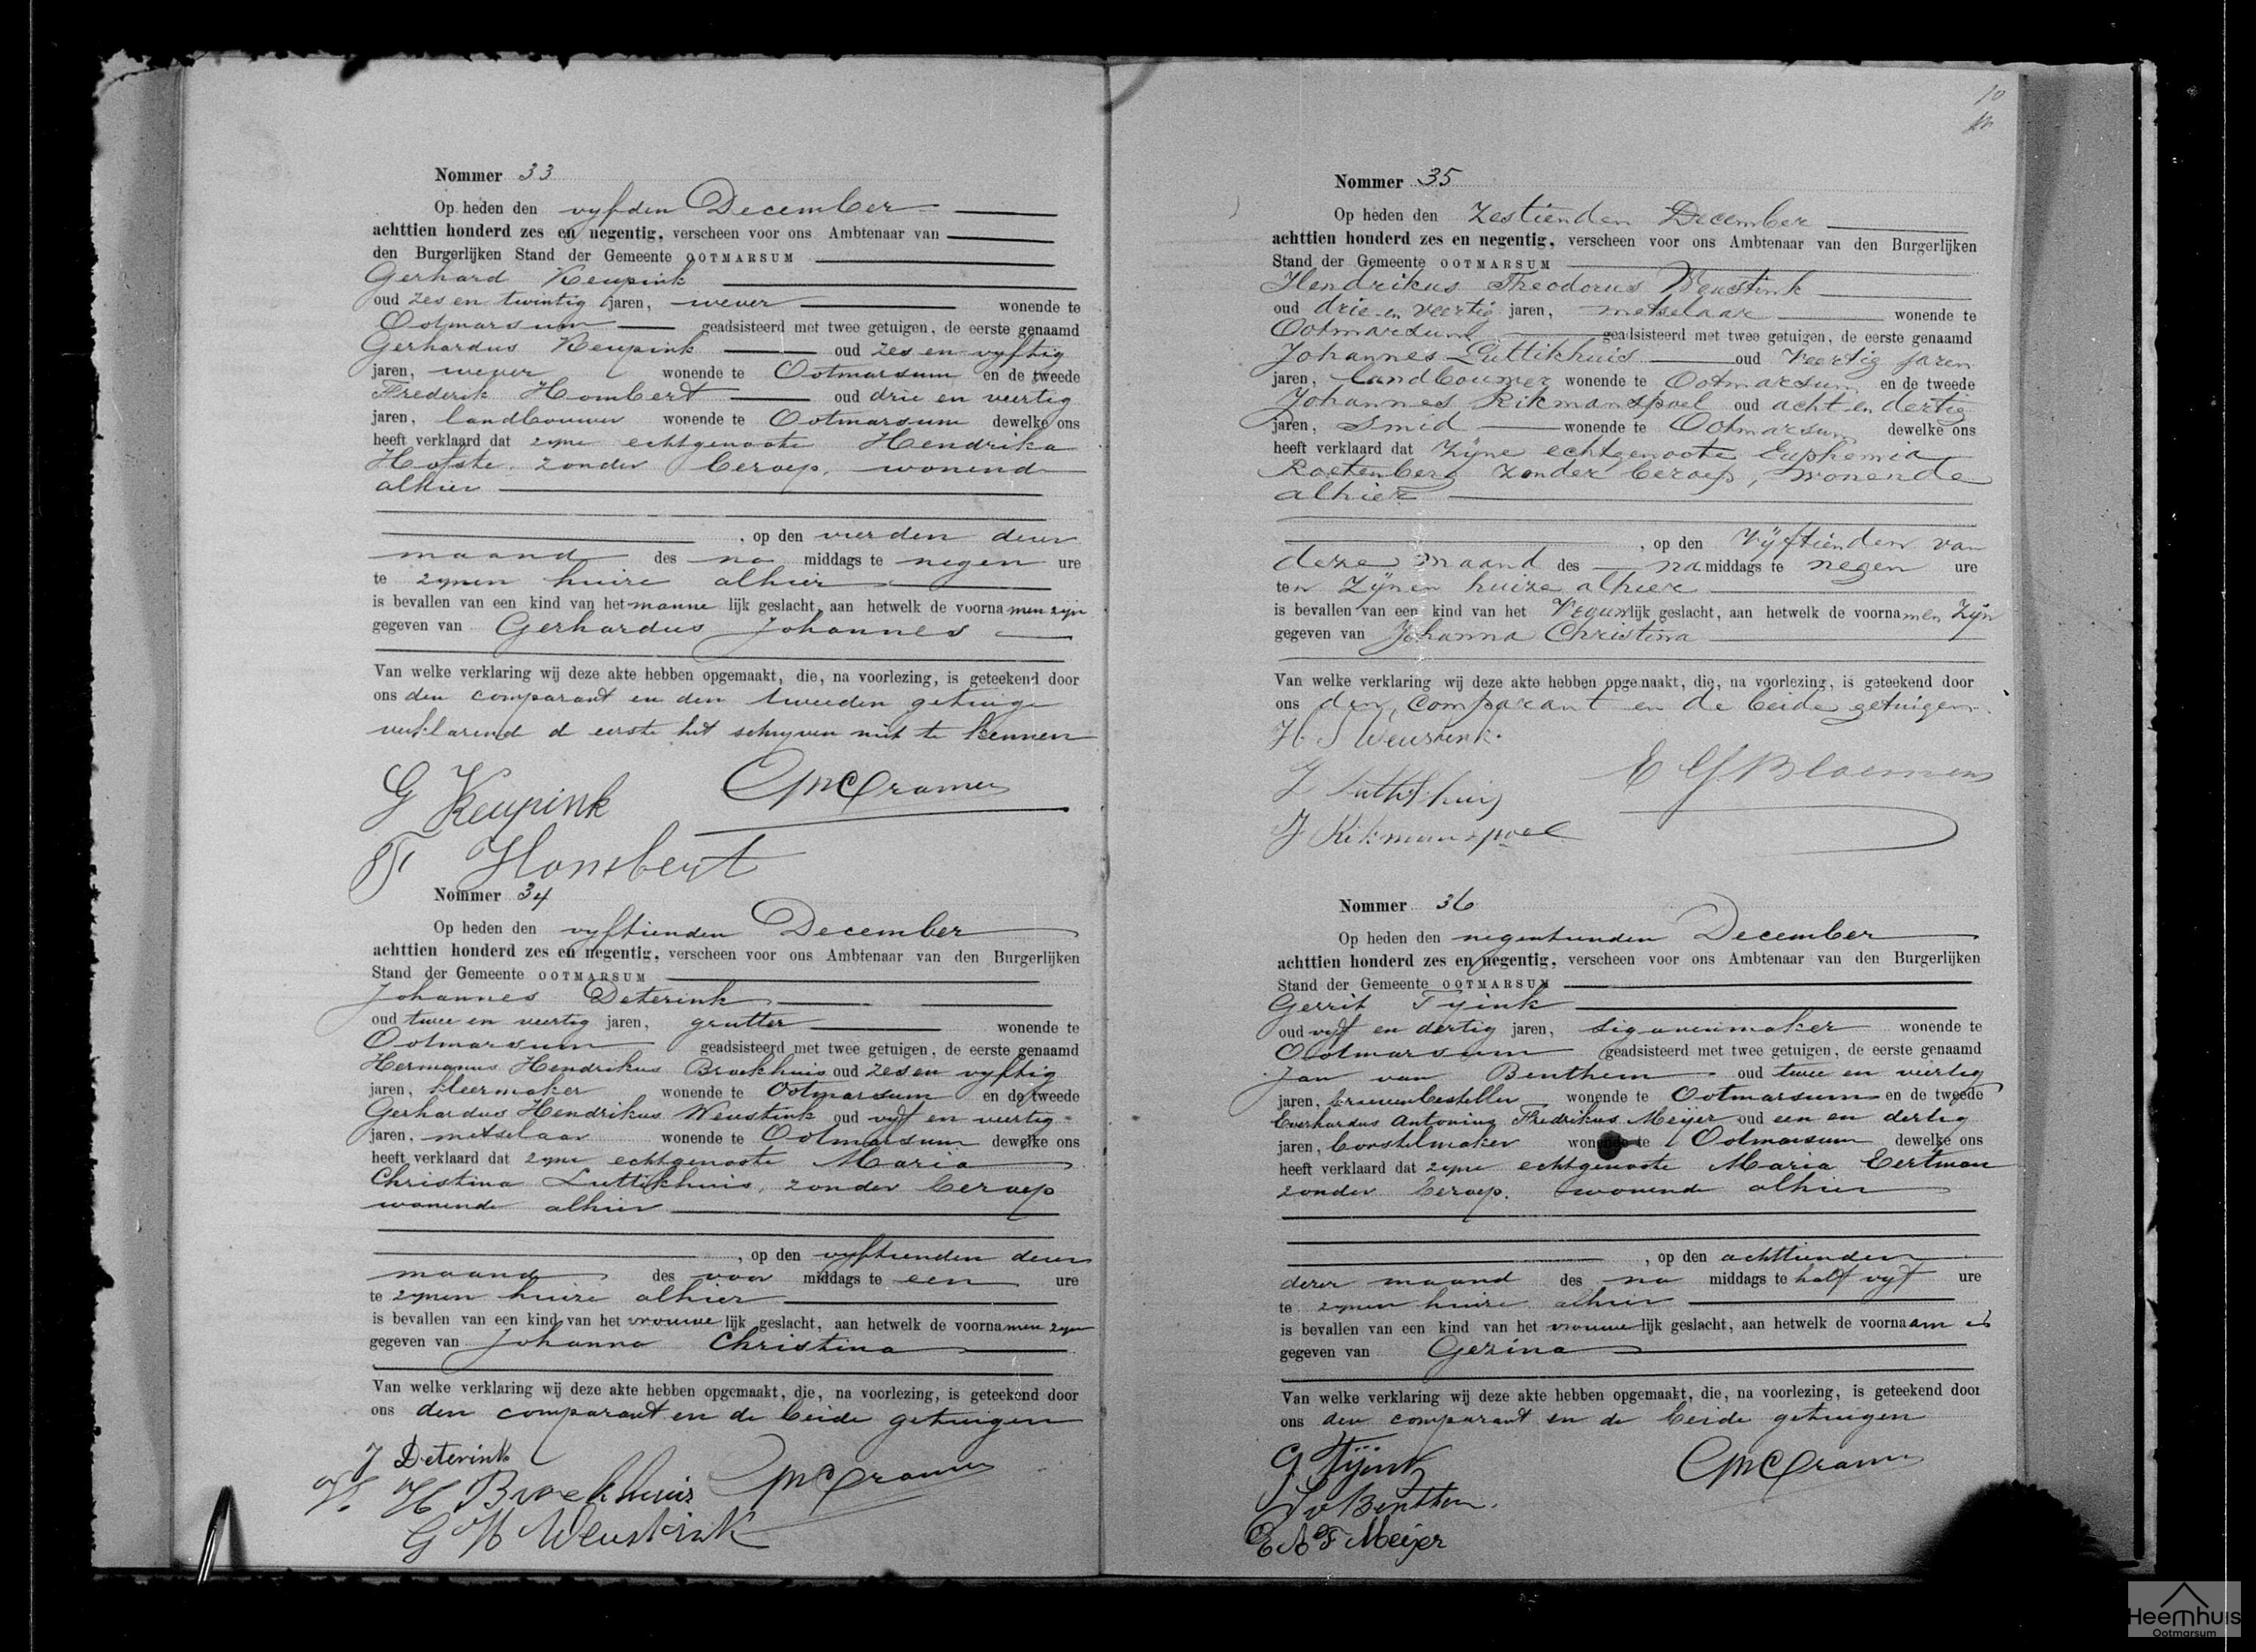 Nommer 33
Op heden den vyfden December
achttien honderd zes en negentig, verscheen voor ons Ambtenaar van
den Burgerlijken Stand der Gemeente OOTMARSUM
Gerhard Keupink
oud zes en twintig jaren, wever wonende te
Ootmarsum geadsisteerd met twee getuigen, de eerste genaamd
Gerhardus Keupink oud zes en vyftig
jaren, wever wonende te Ootmarsum en de tweede
Frederik Hombert oud drie en veertig
jaren, landbouwer wonende te Ootmarsum dewelke ons
heeft verklaard dat zyne echtgenoote Hendrika
Hofste, zonder beroep, wonende
alhier
, op den vierden dezer
maand des na middags te negen ure
te zynen huize alhier
is bevallen van een kind van het manne lijk geslacht, aan hetwelk de voorna men zyn
gegeven van Gerhardus Johannes
Van welke verklaring wij deze akte hebben opgemaakt, die, na voorlezing, is geteekend door
ons den comparant en den tweeden getuige
verklarend d eerste het schryven niet te kennen
G Keupink
Cramer
F Hombert
Nommer 34
Op heden den vyftienden December
achttien honderd zes en negentig, verscheen voor ons Ambtenaar van den Burgerlijken
Stand der Gemeente OOTMARSUM
Johannes Deterink
oud twee en veertig jaren, grutter wonende te
Ootmarsum geadsisteerd met twee getuigen, de eerste genaamd
Hermanus Hendrikus Broekhuis oud zes en vyftig
jaren, kleermaker wonende te Ootmarsum en de tweede
Gerhardus Hendrikus Weustink oud vyf en veertig
jaren, metselaar wonende te Ootmarsum dewelke ons
heeft verklaard dat zyne echtgenoote Maria
Christina Luttikhuis, zonder beroep
wonende alhier
, op den vyftienden dezer
maand des voor middags te een ure
te zynen huize alhier
is bevallen van een kind van het vrouwe lijk geslacht, aan hetwelk de voorna men zyn
gegeven van Johanna Christina
Van welke verklaring wij deze akte hebben opgemaakt, die, na voorlezing, is geteekend door
ons den comparant en de beide getuigen
J Deterink
H. H Broekhuis
Cramer
G H Weustink
10
Nommer 35
Op heden den zestienden December
achttien honderd zes en negentig, verscheen voor ons Ambtenaar van den Burgerlijken
Stand der Gemeente OOTMARSUM
Hendrikus Theodorus Weustink
oud drie en veertig jaren, metselaar wonende te
Ootmarsum geadsisteerd met twee getuigen, de eerste genaamd
Johannes Luttikhuis oud Veertig jaren
jaren, landbouwer wonende te Ootmarsum en de tweede
Johannes Rikmanspoel oud acht en dertig
jaren, Smid wonende te Ootmarsum dewelke ons
heeft verklaard dat Zijne echtgenoote Euphemia
Roetenberg zonder beroep, wonende
alhier
, op den Vijftienden van
deze maand des na middags te negen ure
ten Zijnen huize alhier
is bevallen van een kind van het Vrouwlijk geslacht, aan hetwelk de voornamen Zijn
gegeven van Johanna Christina
Van welke verklaring wij deze akte hebben opgemaakt, die, na voorlezing, is geteekend door
ons den, comparant en de beide getuigen.
H. T Weustink.
J Luttikhuis
E G. Bloemens
J Rikmanspoel
Nommer 36
Op heden den negentienden December
achttien honderd zes en negentig, verscheen voor ons Ambtenaar van den Burgerlijken
Stand der Gemeente OOTMARSUM
Gerrit Tyink
oud vyf en dertig jaren, sigarenmaker wonende te
Ootmarsum geadsisteerd met twee getuigen, de eerste genaamd
Jan van Benthem oud twee en veertig
jaren, brievenbesteller wonende te Ootmarsum en de tweede
Everhardus Antonius Fredrikus Meijer oud een en dertig
jaren, borstelmaker wonende te Ootmarsum dewelke ons
heeft verklaard dat zyne echtgenoote Maria Eertman
zonder beroep, wonende alhier
, op den achttienden
dezer maand des na middags te half vyf ure
te zynen huize alhier
is bevallen van een kind van het vrouwe lijk geslacht, aan hetwelk de voorna am is
gegeven van Gezina
Van welke verklaring wij deze akte hebben opgemaakt, die, na voorlezing, is geteekend door
ons den comparant en de beide getuigen
G Tijink
Cramer
J v Benthem.
E A F Meijer
Heemhuis
Ootmarsum